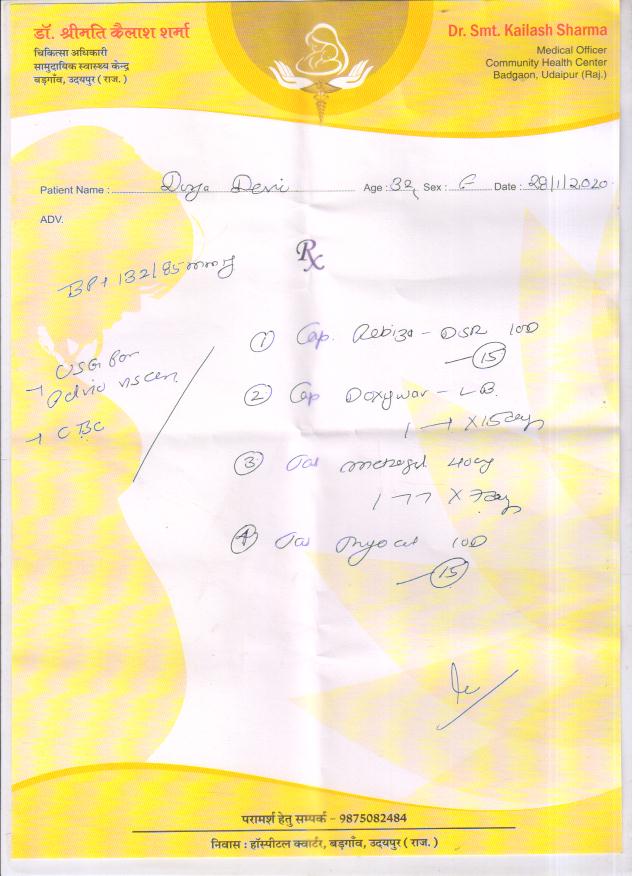 डॉ. श्रीमति कैलाश शर्मा
चिकित्सा अधिकारी
सामुदायिक स्वास्थ्य केन्द्र
बड़गाँव, उदयपुर ( राज. )
Dr. Smt. Kailash Sharma
Medical Officer
Community Health Center
Badgaon, Udaipur (Raj.)
Patient Name : Devi Age : 32 Sex : F Date : 28/1/2020
ADV.
Rx
BP+ 132/85 mmHg
USG for
→ CBC
① Cap. Rebiza - DSR 10D
15
② Cap Doxywar - LB
1 → X 15 day
③ Tab
X 7 day
④ Tab 10D
15
परामर्श हेतु सम्पर्क - 9875082484
निवास : हॉस्पीटल क्वार्टर, बड़गाँव, उदयपुर ( राज. )